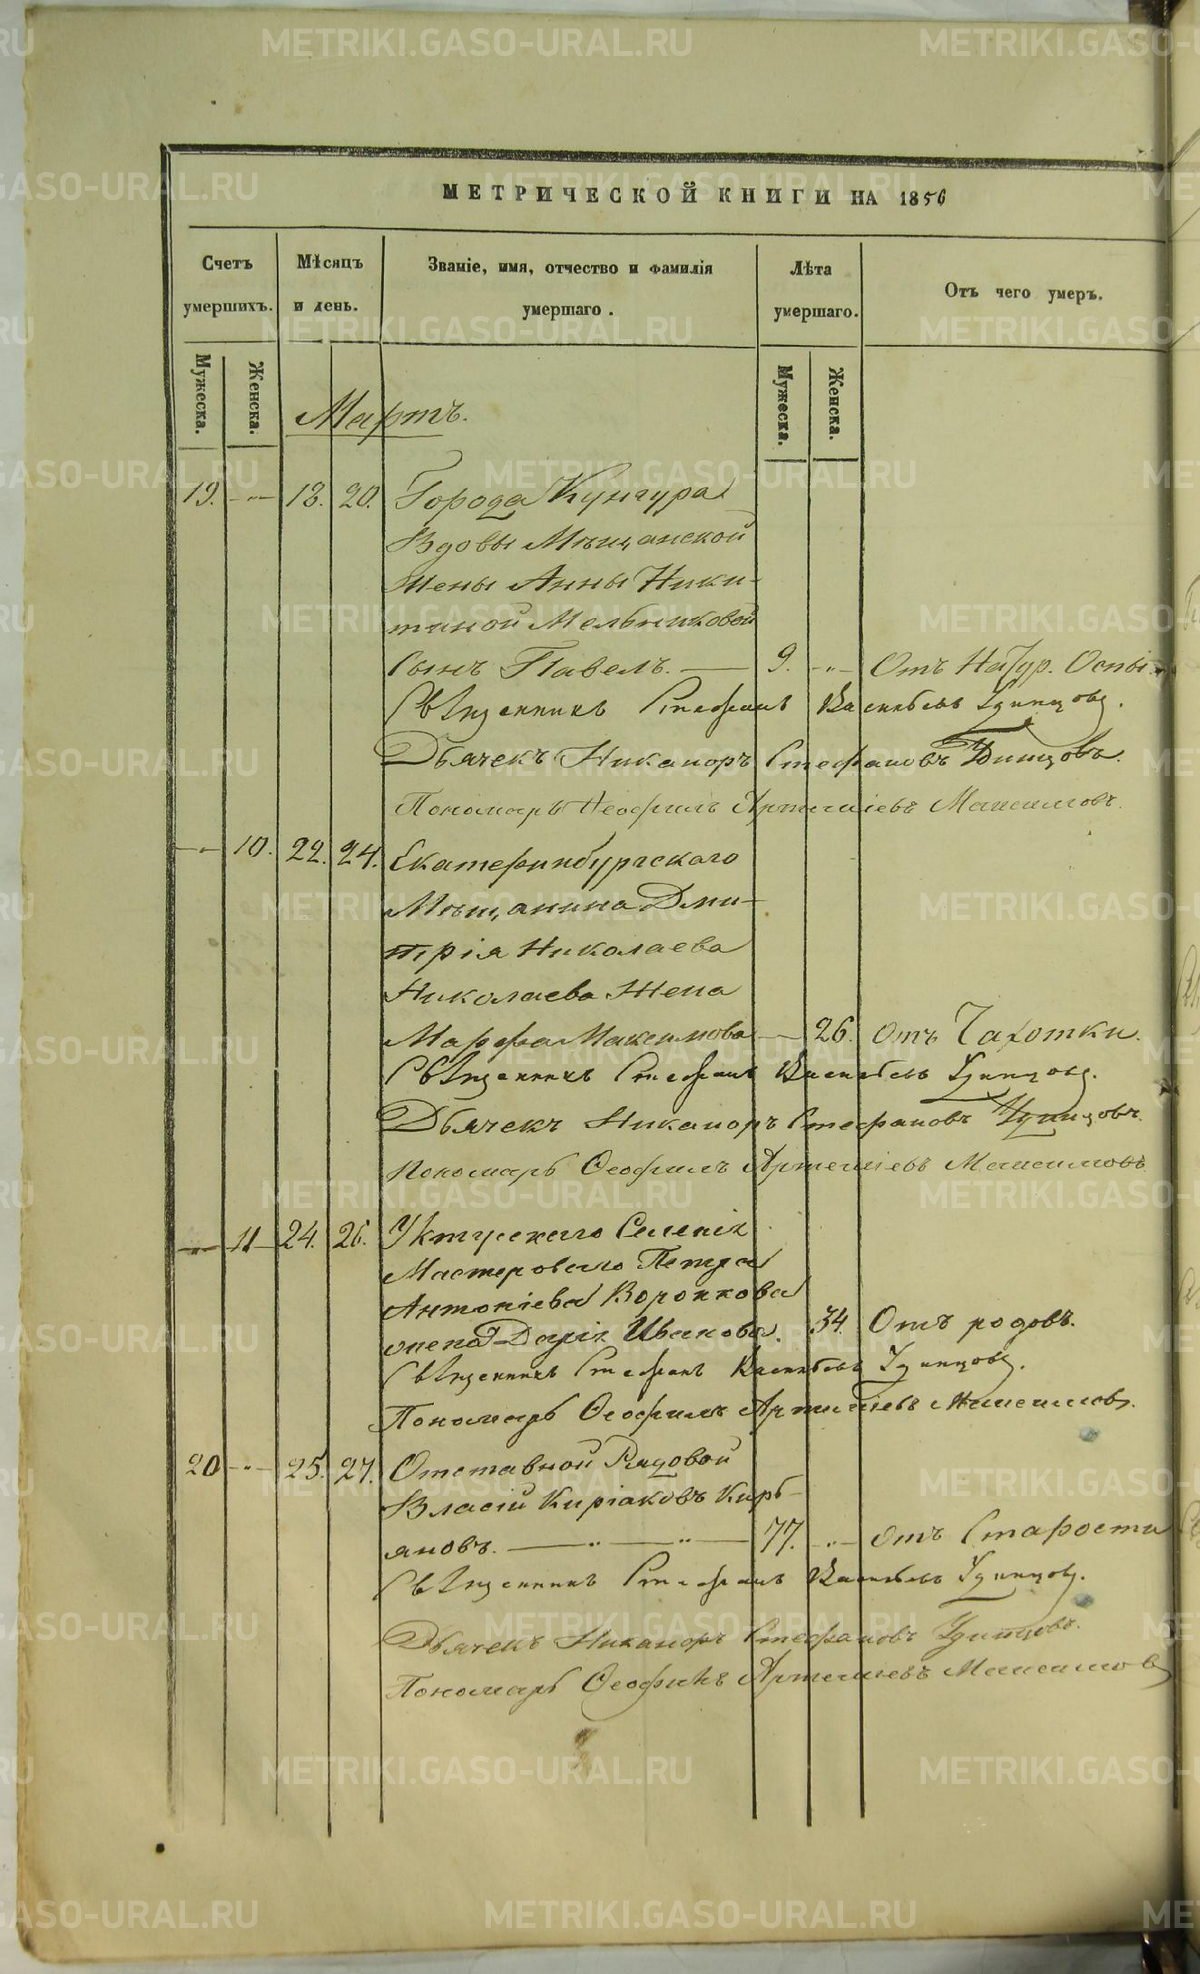 МЕТРИЧЕСКОЙ КНИГИ НА 1856
Счетъ умершихъ.
Мѣсяцъ и день.
Званіе, имя, отчество и фамилія умершаго.
Лѣта умершаго.
Отъ чего умеръ.
Мужеска.
Женска.
Мужеска.
Женска.
Мартъ.
19. — 18. 20. Города Кунгура
Вдовы Мѣщанской
Жены Анны Ники-
тиной Мельниковой
Сынъ Павелъ. — 9. — Отъ Натур. Оспы.
Священникъ Стефанъ Васильевъ Удинцовъ.
Дьячекъ Никаноръ Стефановъ Удинцовъ.
Пономарь Феофилъ Артеміевъ Максимовъ.
— 10. 22. 24. Екатеринбургскаго
Мѣщанина Дми-
трія Николаева
Николаева Жена
Марфа Максимова — 26. Отъ Чахотки.
Священникъ Стефанъ Васильевъ Удинцовъ.
Дьячекъ Никаноръ Стефановъ Удинцовъ.
Пономарь Феофилъ Артеміевъ Максимовъ
— 11 24. 26. Уктусскаго Селенія
Мастероваго Петра
Антоніева Воронкова
жена Дарія Иванова. 34. Отъ родовъ.
Священникъ Стефанъ Васильевъ Удинцовъ.
Пономарь Феофилъ Артеміевъ Максимовъ.
20 — 25. 27. Отставной Рядовой
Власій Киріаковъ Кирь-
яновъ. — 77. — Отъ Старости
Священникъ Стефанъ Васильевъ Удинцовъ.
Дьячекъ Никаноръ Стефановъ Удинцовъ.
Пономарь Феофилъ Артеміевъ Максимовъ
METRIKI.GASO-URAL.RU